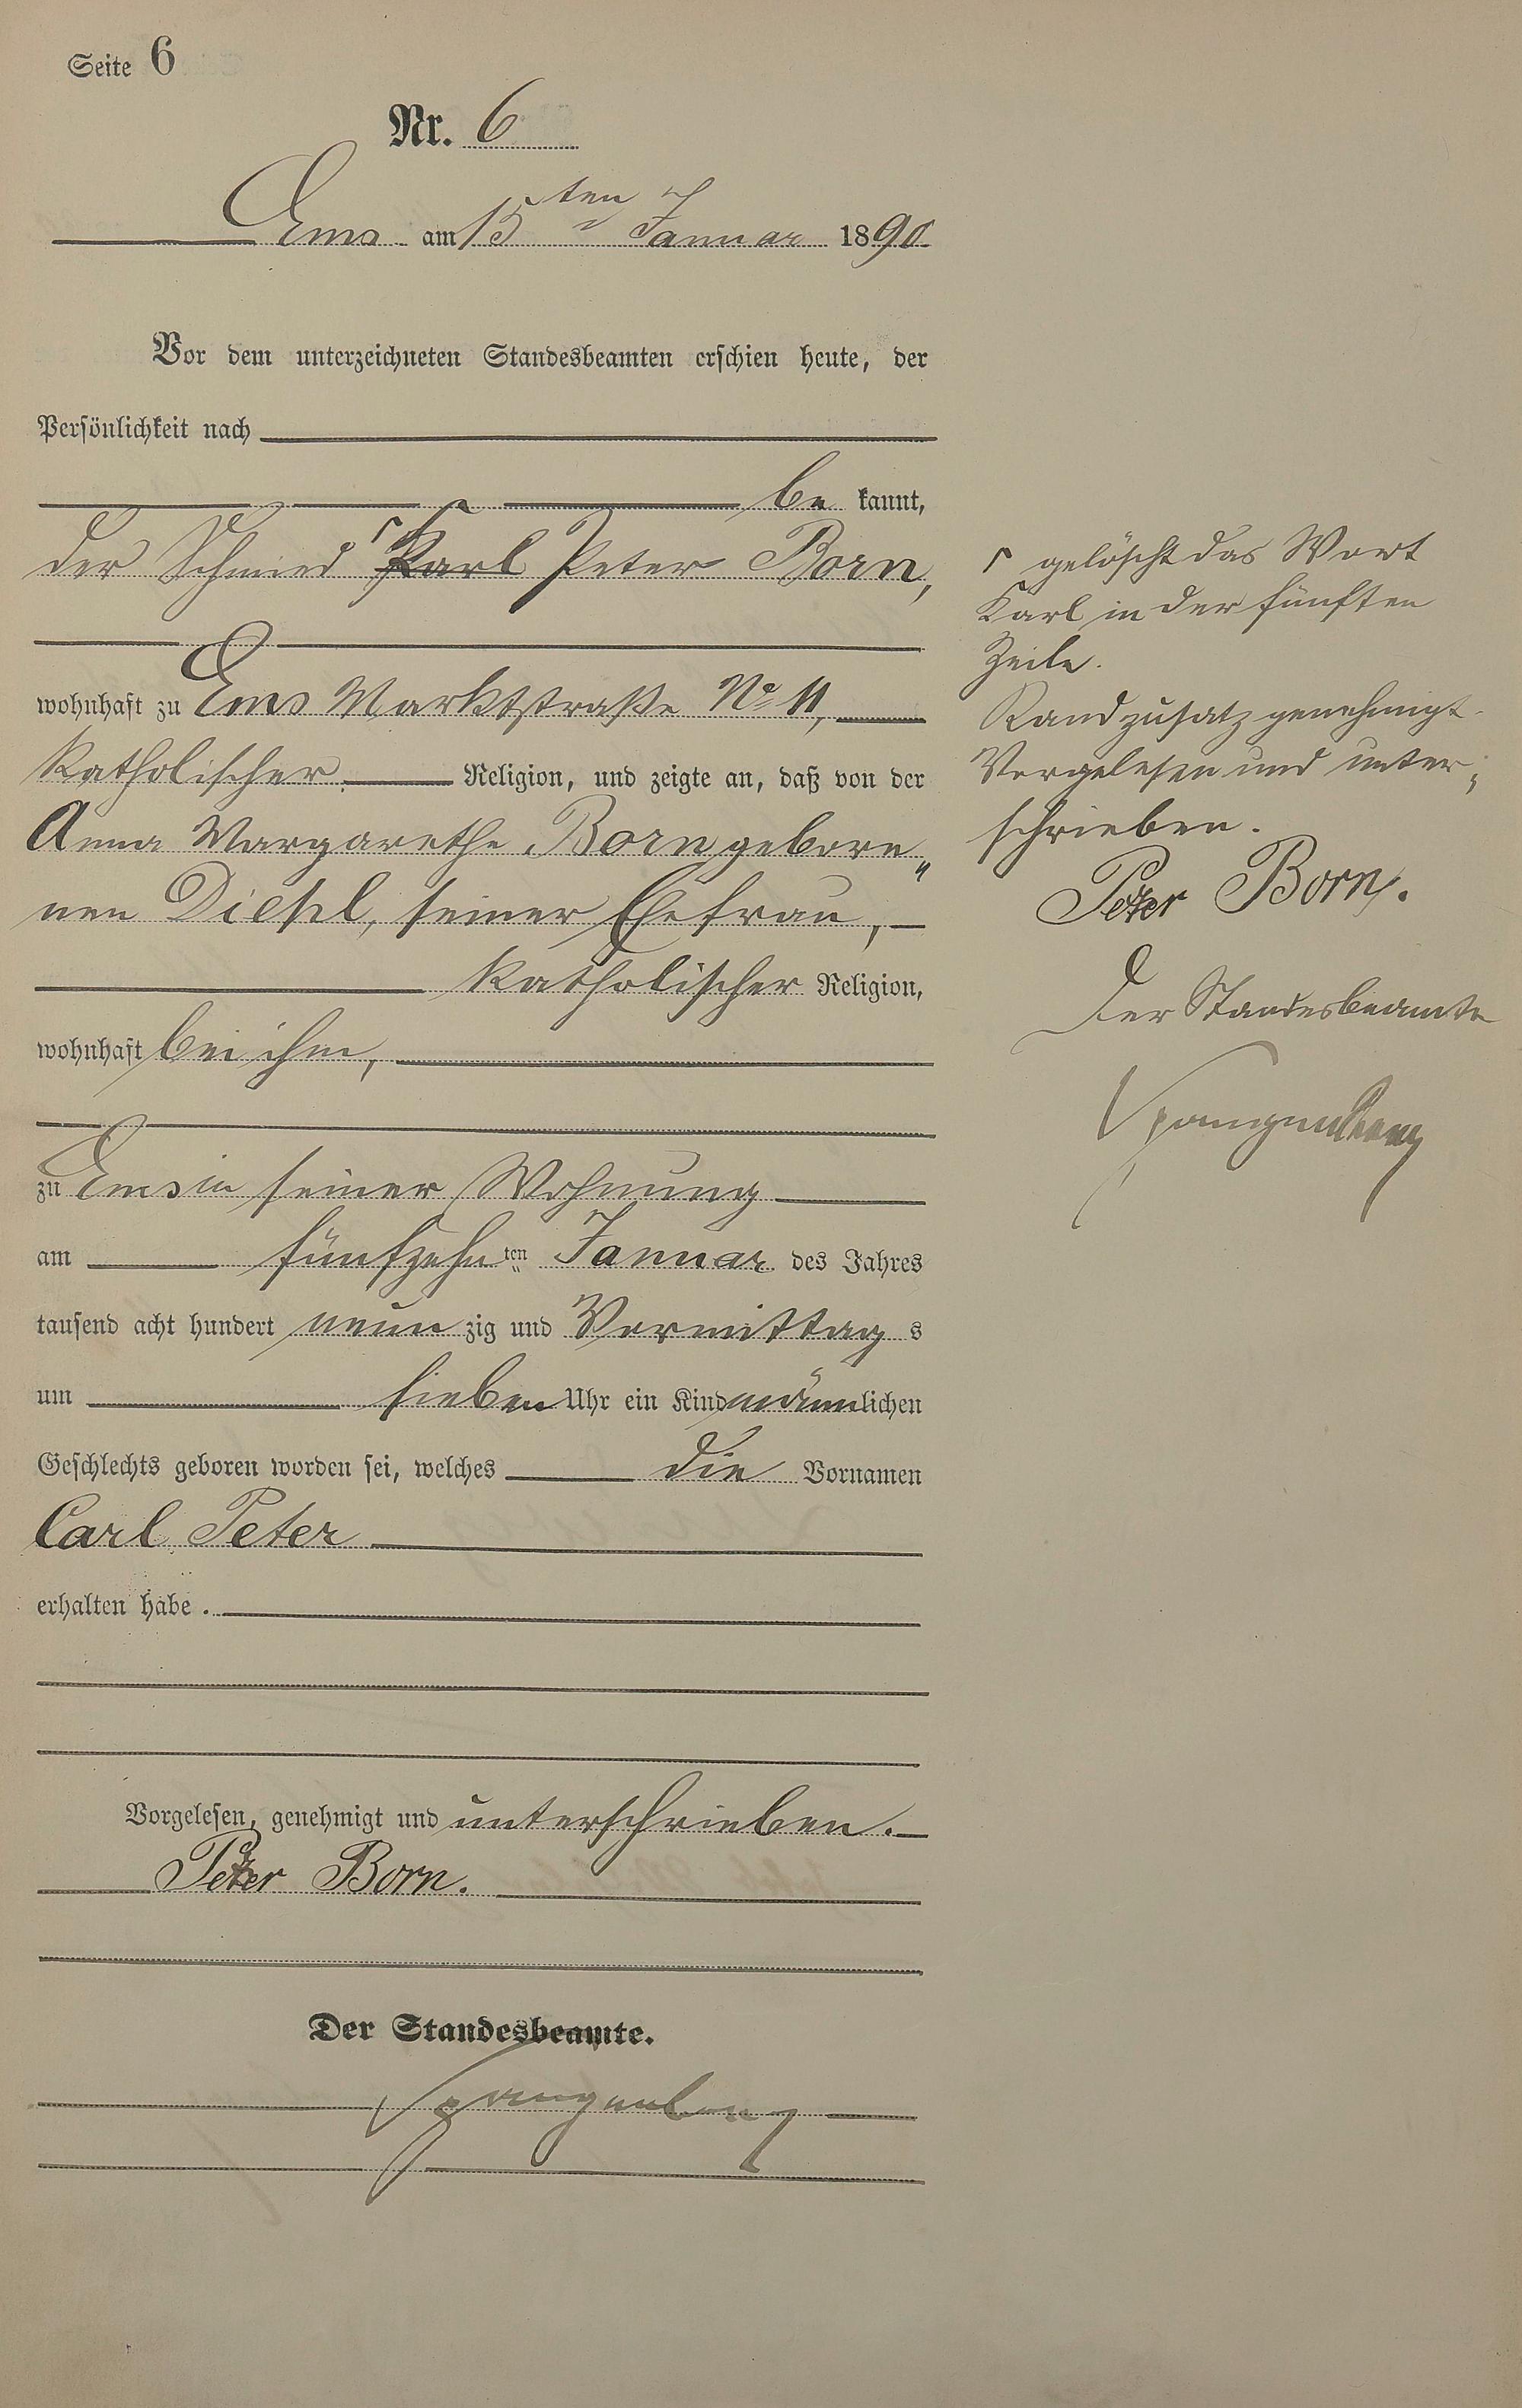 Seite 6
Nr. 6
Ems am 15ten Januar 1890
Vor dem unterzeichneten Standesbeamten erschien heute, der
Persönlichkeit nach
be kannt,
der Schmied ſ Karl Peter Born,
wohnhaft zu Ems Marktstraße No 11,
katholischer Religion, und zeigte an, daß von der
Anna Margarethe Born geborn„
nen Diesel, seiner Ehefrau,
katholischer Religion,
wohnhaft bei ihm,
zu Ems in seiner Wohnung
am fünfzehn ten Januar des Jahres
tausend acht hundert neun zig und Vormittag s
um sieben Uhr ein Kind männlichen
Geschlechts geboren worden sei, welches die Vornamen
Carl Peter
erhalten habe.
Vorgelesen, genehmigt und unterschrieben.
Peter Born.
Der Standesbeamte.
Spangenberg
ſ gelöscht das Wort
Karl in der fünften
Zeile.
Randzusatz genehmigt.
Vorgelesen und unter„
schrieben.
Peter Born.
Der Standesbeamte
Spangenberg